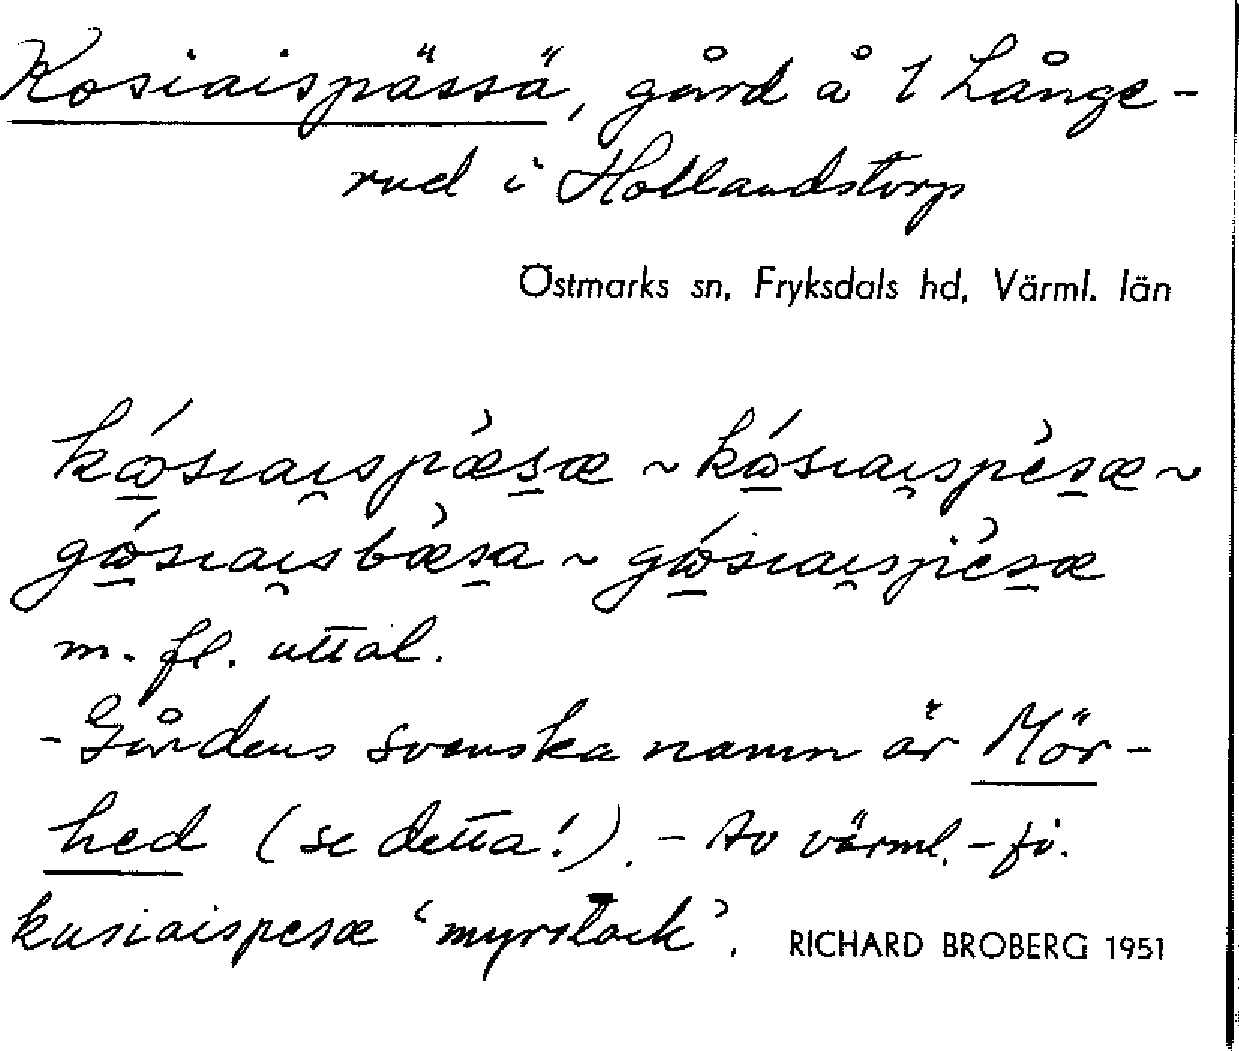 Kosiaispässä, gård å 1 Långe-
rud i Hollandstorp
Östmarks sn, Fryksdals hd, Värml. län
kó̱sıai̯spæ̀s̱æ ~ kó̱sıai̯spès̱æ ~
gó̱sıai̯sbæ̀s̱a ~ gó̱sıai̯spès̱æ
m. fl. uttal.
- Gårdens svenska namn är Mör-
hed (se detta!). - Av värml.-fi.
kusiaispesæ ‘myrstack’. RICHARD BROBERG 1951